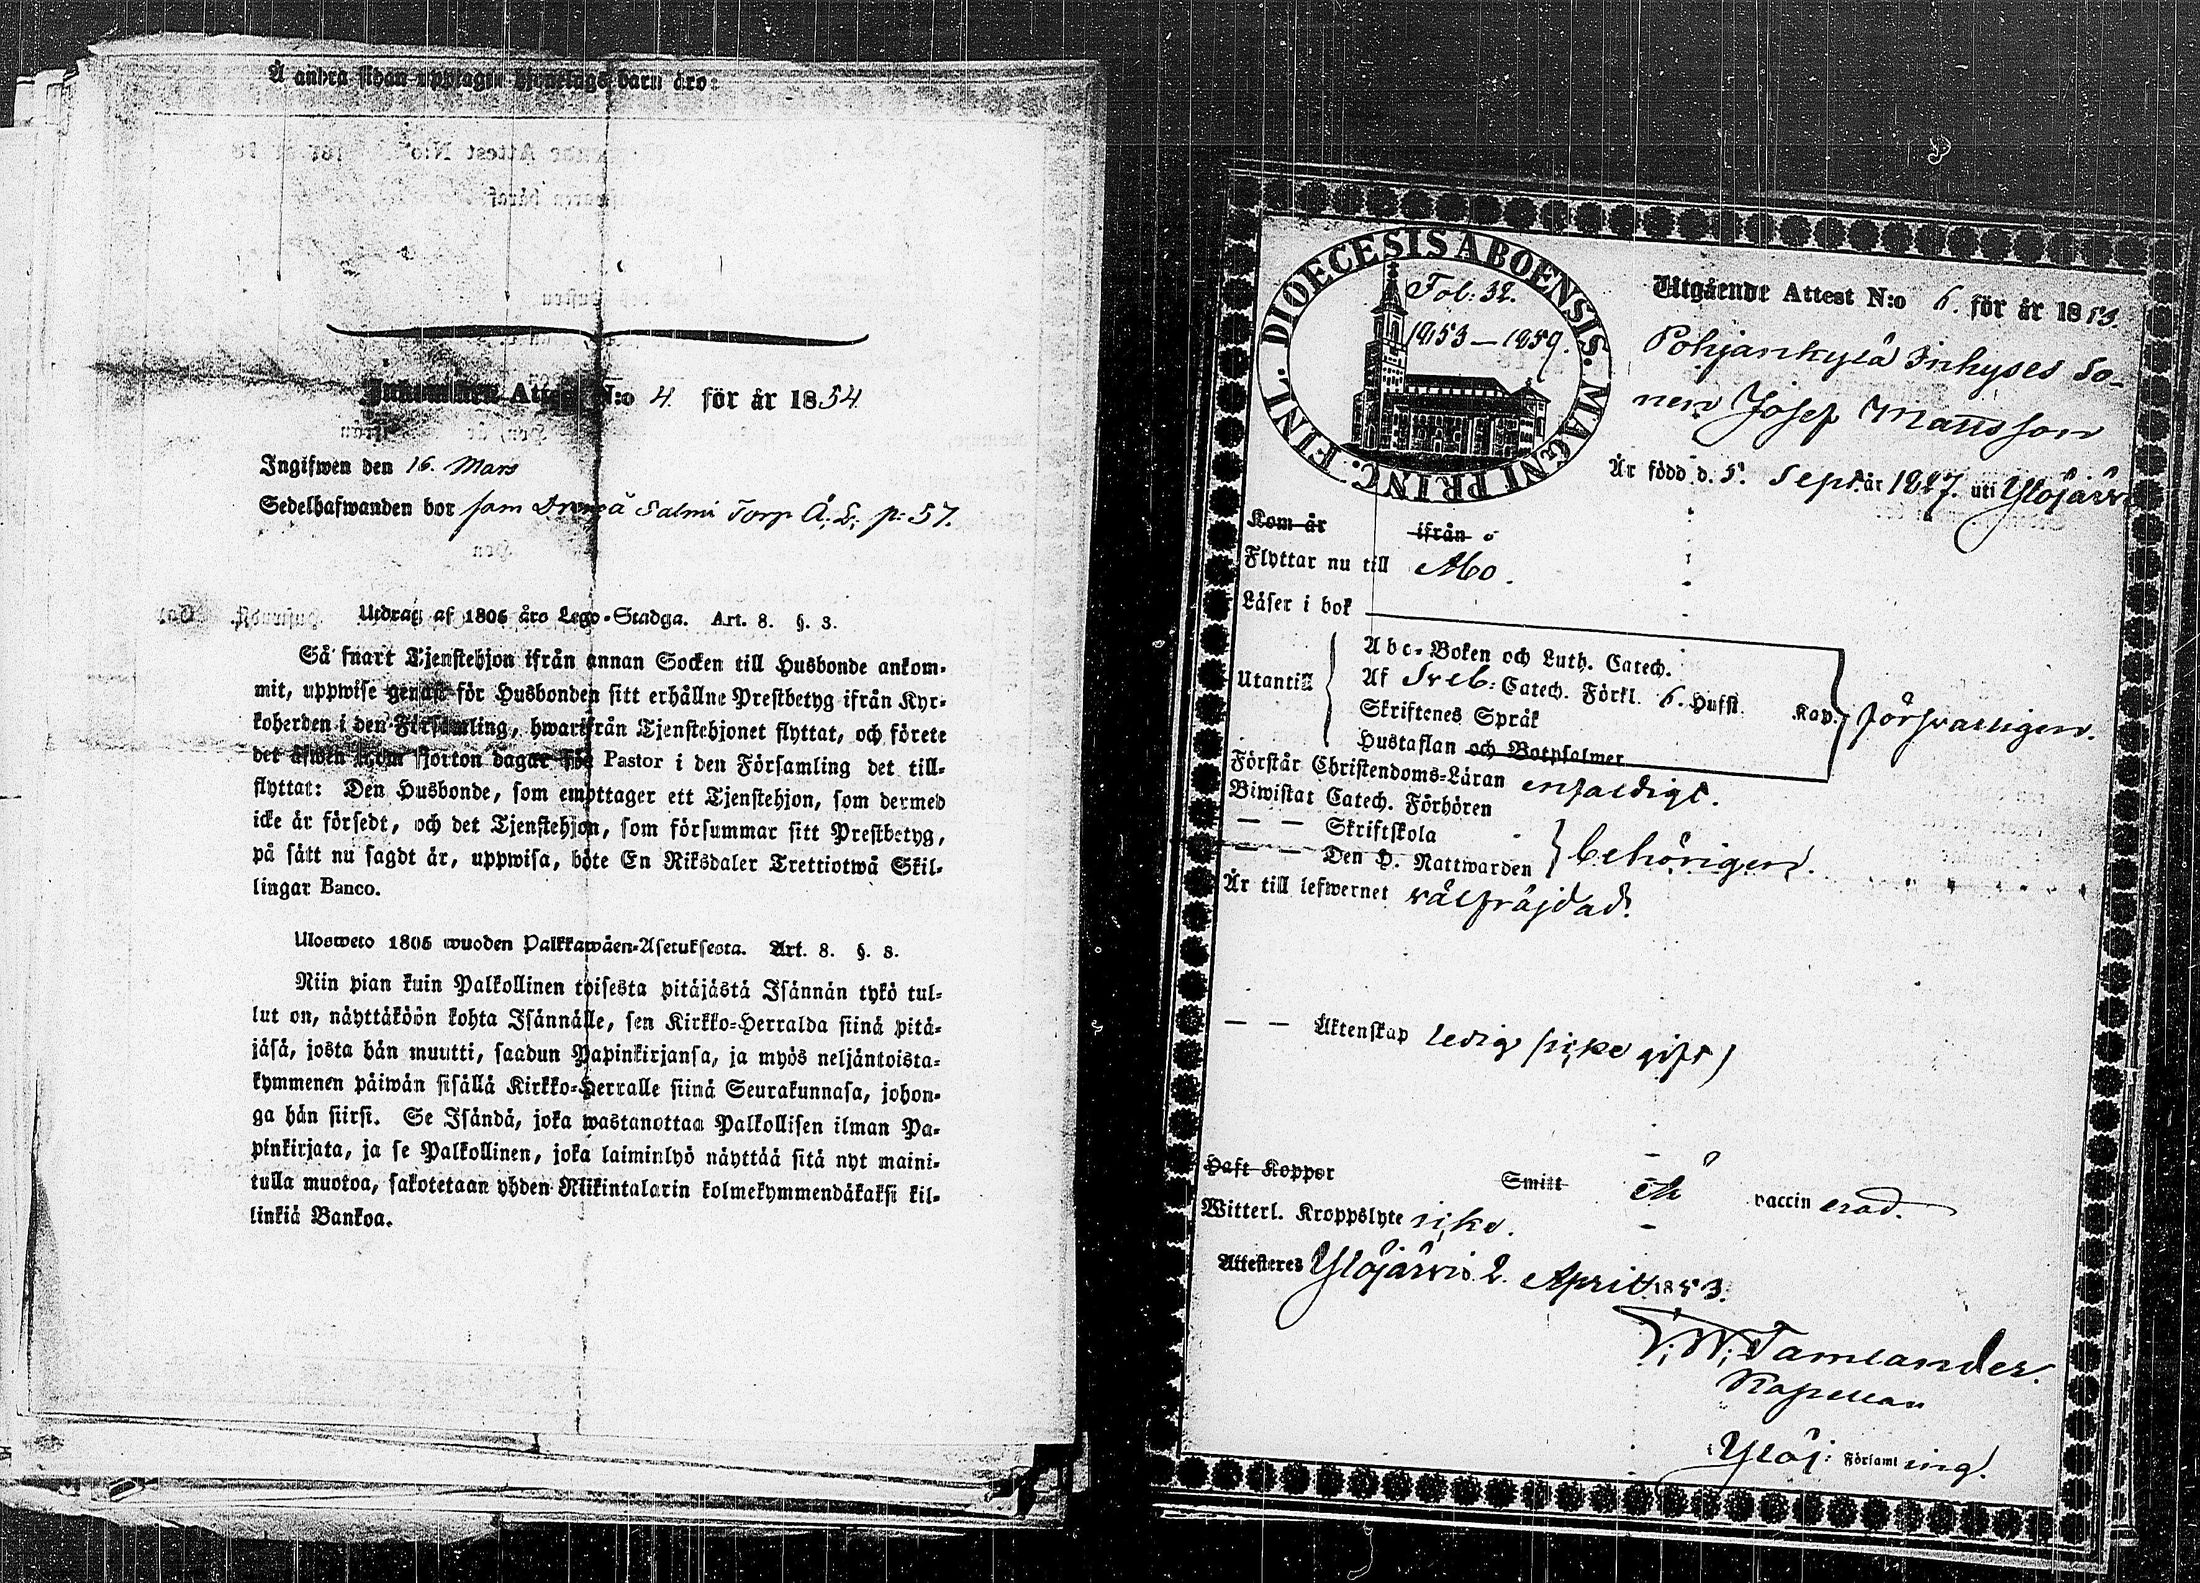 Å andra sidan upptagne hjonelags barn äro:
Inkommen Attest N:o 4 för år 1854
Ingifwen den 16. Mars
Sedelhafwanden bor som Salmi Torp p: 57.
Utdrag af 1805 års Lego-Stadga. Art. 8. §. 3.
Så snart Tjenstehjon ifrån annan Socken till Husbonde ankom-
mit, uppwise genast för Husbonden sitt erhållne Prestbetyg ifrån Kyr-
koherden i den Församling, hwarifrån Tjenstehjonet flyttat, och förete
det äfwen inom fjorton dagar för Pastor i den Församling det till-
flyttat: Den Husbonde, som emottager ett Tjenstehjon, som dermed
icke är försedt, och det Tjenstehjon, som försummar sitt Prestbetyg,
på sätt nu sagdt är, uppwisa, böte En Riksdaler Trettiotwå Skil-
lingar Banco.
Ulosweto 1805 wuoden Palkkawäen-Asetuksesta. Art. 8. §. 3.
Niin pian kuin Palkollinen toisesta pitäjästä Isännän tykö tul-
lut on, näyttäköön kohta Isännälle, sen Kirkko-Herralda siinä pitä-
jäsä, josta hän muutti, saadun Papinkirjansa, ja myös neljäntoista-
kymmenen päiwän sisällä Kirkko-Herralle siinä Seurakunnasa, johon-
ga hän siirsi. Se Isändä, joka wastanottaa Palkollisen ilman Pa-
pinkirjata, ja se Palkollinen, joka laiminlyö näyttää sitä nyt maini-
tulla muotoa, sakotetaan yhden Riikintalarin kolmekymmendäkaksi kil-
linkiä Bankoa.
DIOECESIS ABOENSIS. MAGNI PRINC. FINL.
Fol: 32.
1853–1859.
Utgående Attest N:o 6. för år 1853.
Pohjankylä Inhyses So-
nen Josef Mattsson
Är född d. 5. Sept. år 1827. uti Ylöjärvi
Kom år ifrån
Flyttar nu till Åbo.
Läser i bok
Utantill
Abc-Boken och Luth. Catech.
Af Sveb: Catech. Förkl. 6. Hufst. Kap.
Skriftenes Språk
Hustaflan och Botpsalmer
försvarligen.
Förstår Christendoms-Läran enfaldigt.
Biwistat Catech. Förhören
— — Skriftskola
— — Den H. Nattwarden
behörigen.
Är till lefwernet välfräjdad.
— — Äktenskap ledig (icke gift)
Haft Koppor Smitt är vaccinerad.
Witterl. Kroppslyte icke.
Attesteres Ylöjärvi d. 2. April 1853.
Tamlander.
Kapellan
i Ylöj: Församling.